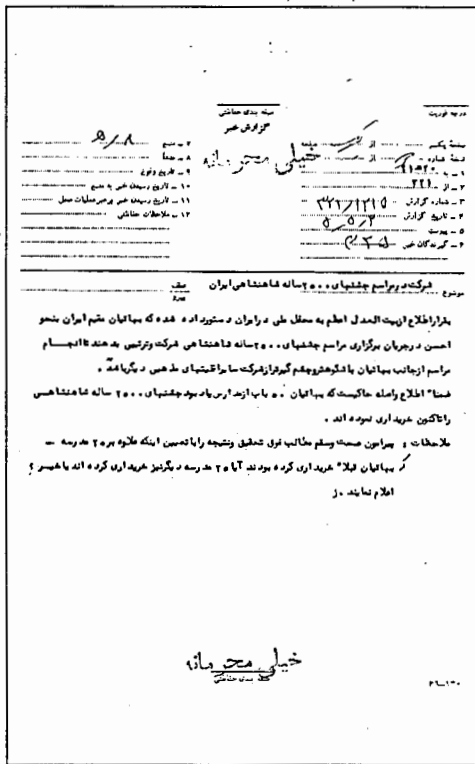 درجه فوریت
طبقه بندی حفاظتی
گزارش خبر
خیلی محرمانه
۷ - منبع
۸ - منشأ
۹ - تاریخ وقوع
۱۰ - تاریخ رسیدن خبر به منبع
۱۱ - تاریخ رسیدن خبر برهبر عملیات محل
۱۲ - ملاحظات حفاظتی
صفحه یکم از صفحه
نسخه شماره از
۱ - به
۲ - از ۲۲۱
۳ - شماره گزارش
۴ - تاریخ گزارش
۵ - پیوست
۶ - گیرندگان خبر
موضوع شرکت در مراسم جشنهای ۲۵۰۰ ساله شاهنشاهی ایران
بقرار اطلاع از بیت العدل اعظم به محفل ملی در ایران دستور داده شده که بهائیان مقیم ایران بنحو
احسن در جریان برگزاری مراسم جشنهای ۲۵۰۰ ساله شاهنشاهی شرکت و ترتیبی بدهند تا انجام
مراسم از جانب بهائیان باشکوهتر و چشم گیرتر از شرکت سایر اقلیتهای مذهبی دیگر باشد .
ضمنا" اطلاع واصله حاکیست که بهائیان ۵۰ باب از مدارس یاد بود جشنهای ۲۵۰۰ ساله شاهنشاهی
را تاکنون خریداری نموده اند .
ملاحظات : پیرامون صحت و سقم مطالب فوق تحقیق و نتیجه را با تعیین اینکه علاوه بر ۲۵ مدرسه -
که بهائیان قبلا" خریداری کرده بودند آیا ۲۵ مدرسه دیگر نیز خریداری کرده اند یا خیر ؟
اعلام نمایند . ز
خیلی محرمانه
طبقه بندی حفاظتی